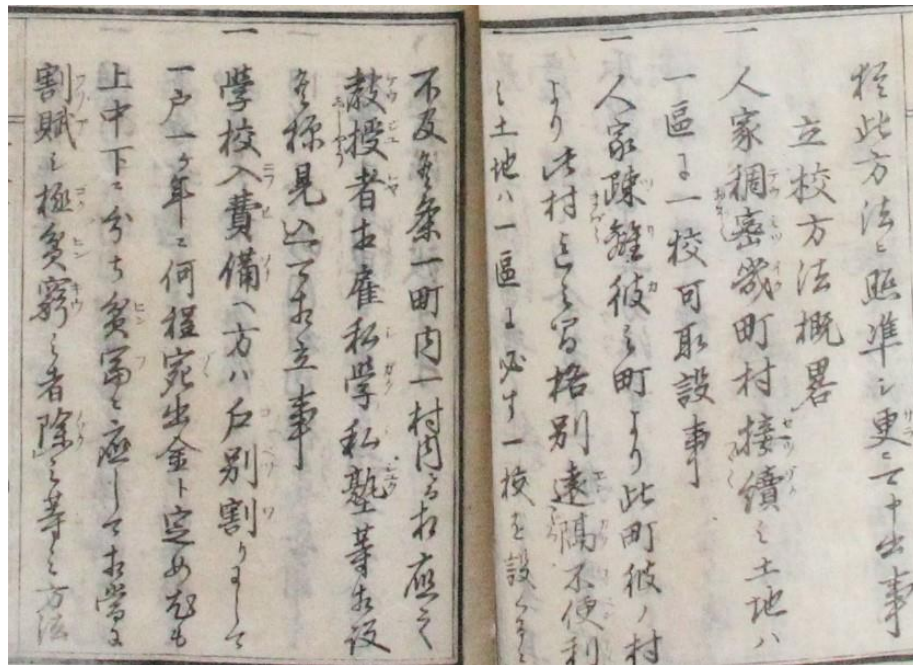 拠此方法ニ照準シ更ニ可申出事
立校方法概畧
一
人家稠密幾町村接續之土地ハ
一區ニ一校可取設事
一
人家疎離彼之町より此町彼ノ村
より此村迄之間格別遠隔不便利
之土地ハ一區ニ必す一校を設くる
不及候条一町内一村内ニ而相應之
教授者相雇私學私塾等相設
候様見込可相立事
一
學校入費備へ方ハ戸別割りニして
一戸一ヶ年ニ何程宛出金ト定め尤も
上中下ニ分ち貧富ニ應して相當に
割賦シ極貧窮之者除之等之方法